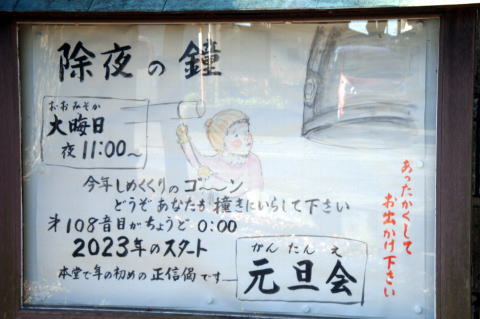 除夜の鐘
おおみそか
大晦日
夜11:00〜
今年しめくくりのゴ〜〜ン
どうぞあなたも撞きにいらして下さい
才108音目がちょうど0:00
2023年のスタート
本堂で年の初めの正信偈です
かんたんえ
元旦会
あったかくして
お出かけ下さい